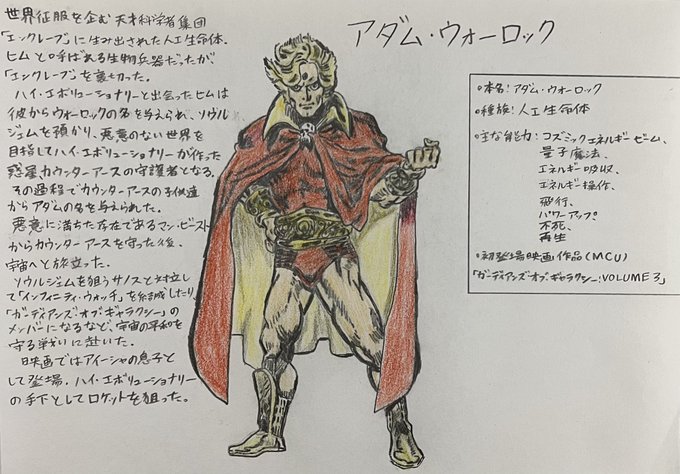 アダム・ウォーロック
世界征服を企む天才科学者集団
「エンクレーブ」に生み出された人工生命体。
ヒムと呼ばれる生物兵器だったが、
「エンクレーブ」を裏切った。
ハイ・エボリューショナリーと出会ったヒムは
彼からウォーロックの名を与えられ、ソウル
ジェムを預かり、悪意のない世界を
目指してハイ・エボリューショナリーが作った
惑星カウンターアースの守護者となる。
その過程でカウンターアースの子供達
からアダムの名を与えられた。
悪意に満ちた存在であるマン・ビースト
からカウンターアースを守った後、
宇宙へと旅立った。
ソウルジェムを狙うサノスと対立し
て「インフィニティ・ウォッチ」を結成したり
「ガーディアンズ・オブ・ギャラクシー」の
メンバーになるなど、宇宙の平和を
守る戦いに赴いた。
映画ではアイーシャの息子と
して登場。ハイ・エボリューショナリー
の手下としてロケットを狙った。
○本名:アダム・ウォーロック
○種族:人工生命体
○主な能力:コズミックエネルギービーム、
量子魔法、
エネルギー吸収、
エネルギー操作、
飛行、
パワーアップ、
不死、
再生
○初登場映画作品(MCU)
「ガーディアンズ・オブ・ギャラクシー:VOLUME3」